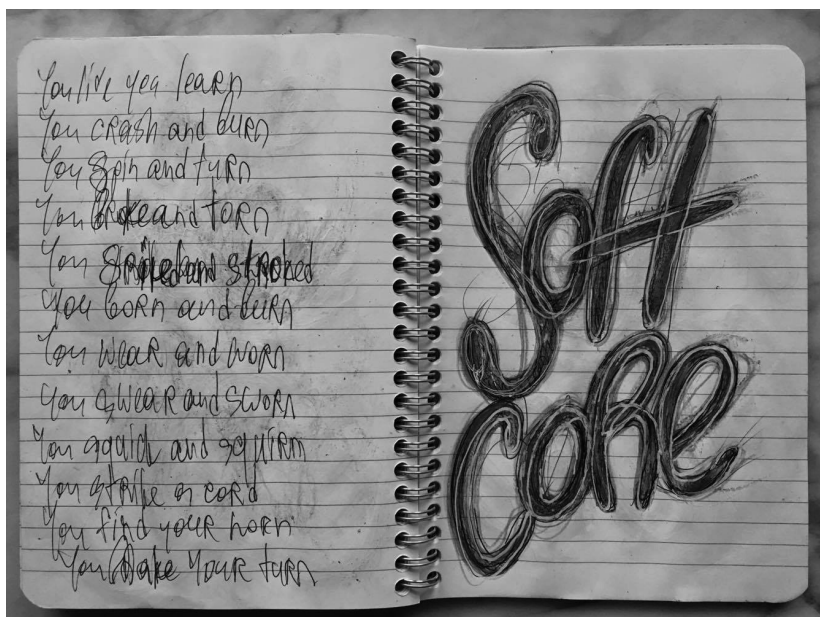 You live you learn
You crash and burn
You spin and turn
You and torn
You and stroked
You born and burn
You wear and worn
You swear and sworn
You squid and squirm
You strike a cord
You find your horn
You your turn
Soft
Core